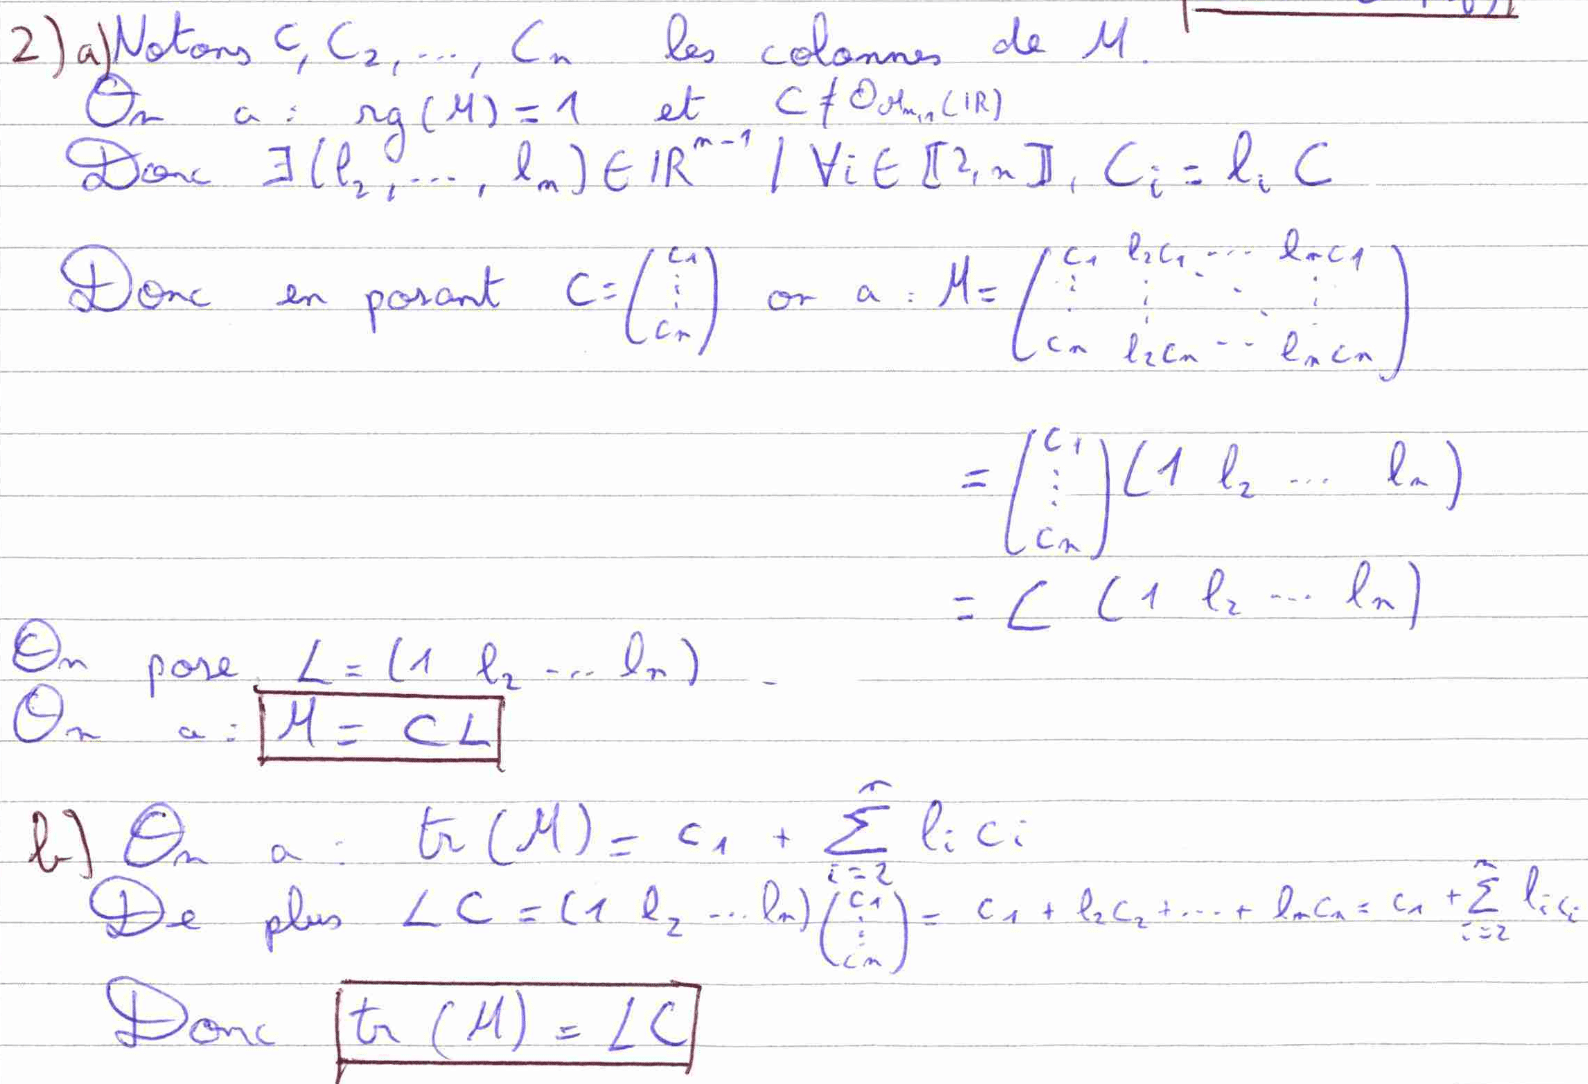 2) a) Notons C, C₂, ..., Cₙ les colonnes de M.
On a : rg(M) = 1 et C ≠ 0_{ℳₙ,₁(ℝ)}
Donc ∃(l₂, ..., lₙ) ∈ ℝⁿ⁻¹ / ∀i ∈ ⟦2, n⟧, Cᵢ = lᵢ C
Donc en posant C = (c₁ ⋮ cₙ) on a : M = (c₁ l₂c₁ ... lₙc₁ ⋮ ⋮ ⋱ ⋮ cₙ l₂cₙ ... lₙcₙ)
= (c₁ ⋮ cₙ) (1 l₂ ... lₙ)
= C (1 l₂ ... lₙ)
On pose L = (1 l₂ ... lₙ).
On a : M = CL
b) On a : tr(M) = c₁ + ∑ᵢ₌₂ⁿ lᵢ cᵢ
De plus LC = (1 l₂ ... lₙ) (c₁ ⋮ cₙ) = c₁ + l₂c₂ + ... + lₙcₙ = c₁ + ∑ᵢ₌₂ⁿ lᵢcᵢ
Donc tr(M) = LC